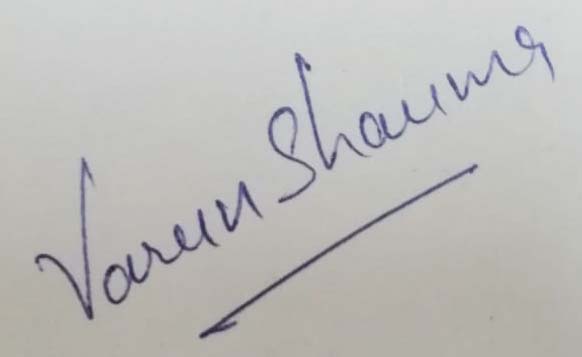 Varun Sharma